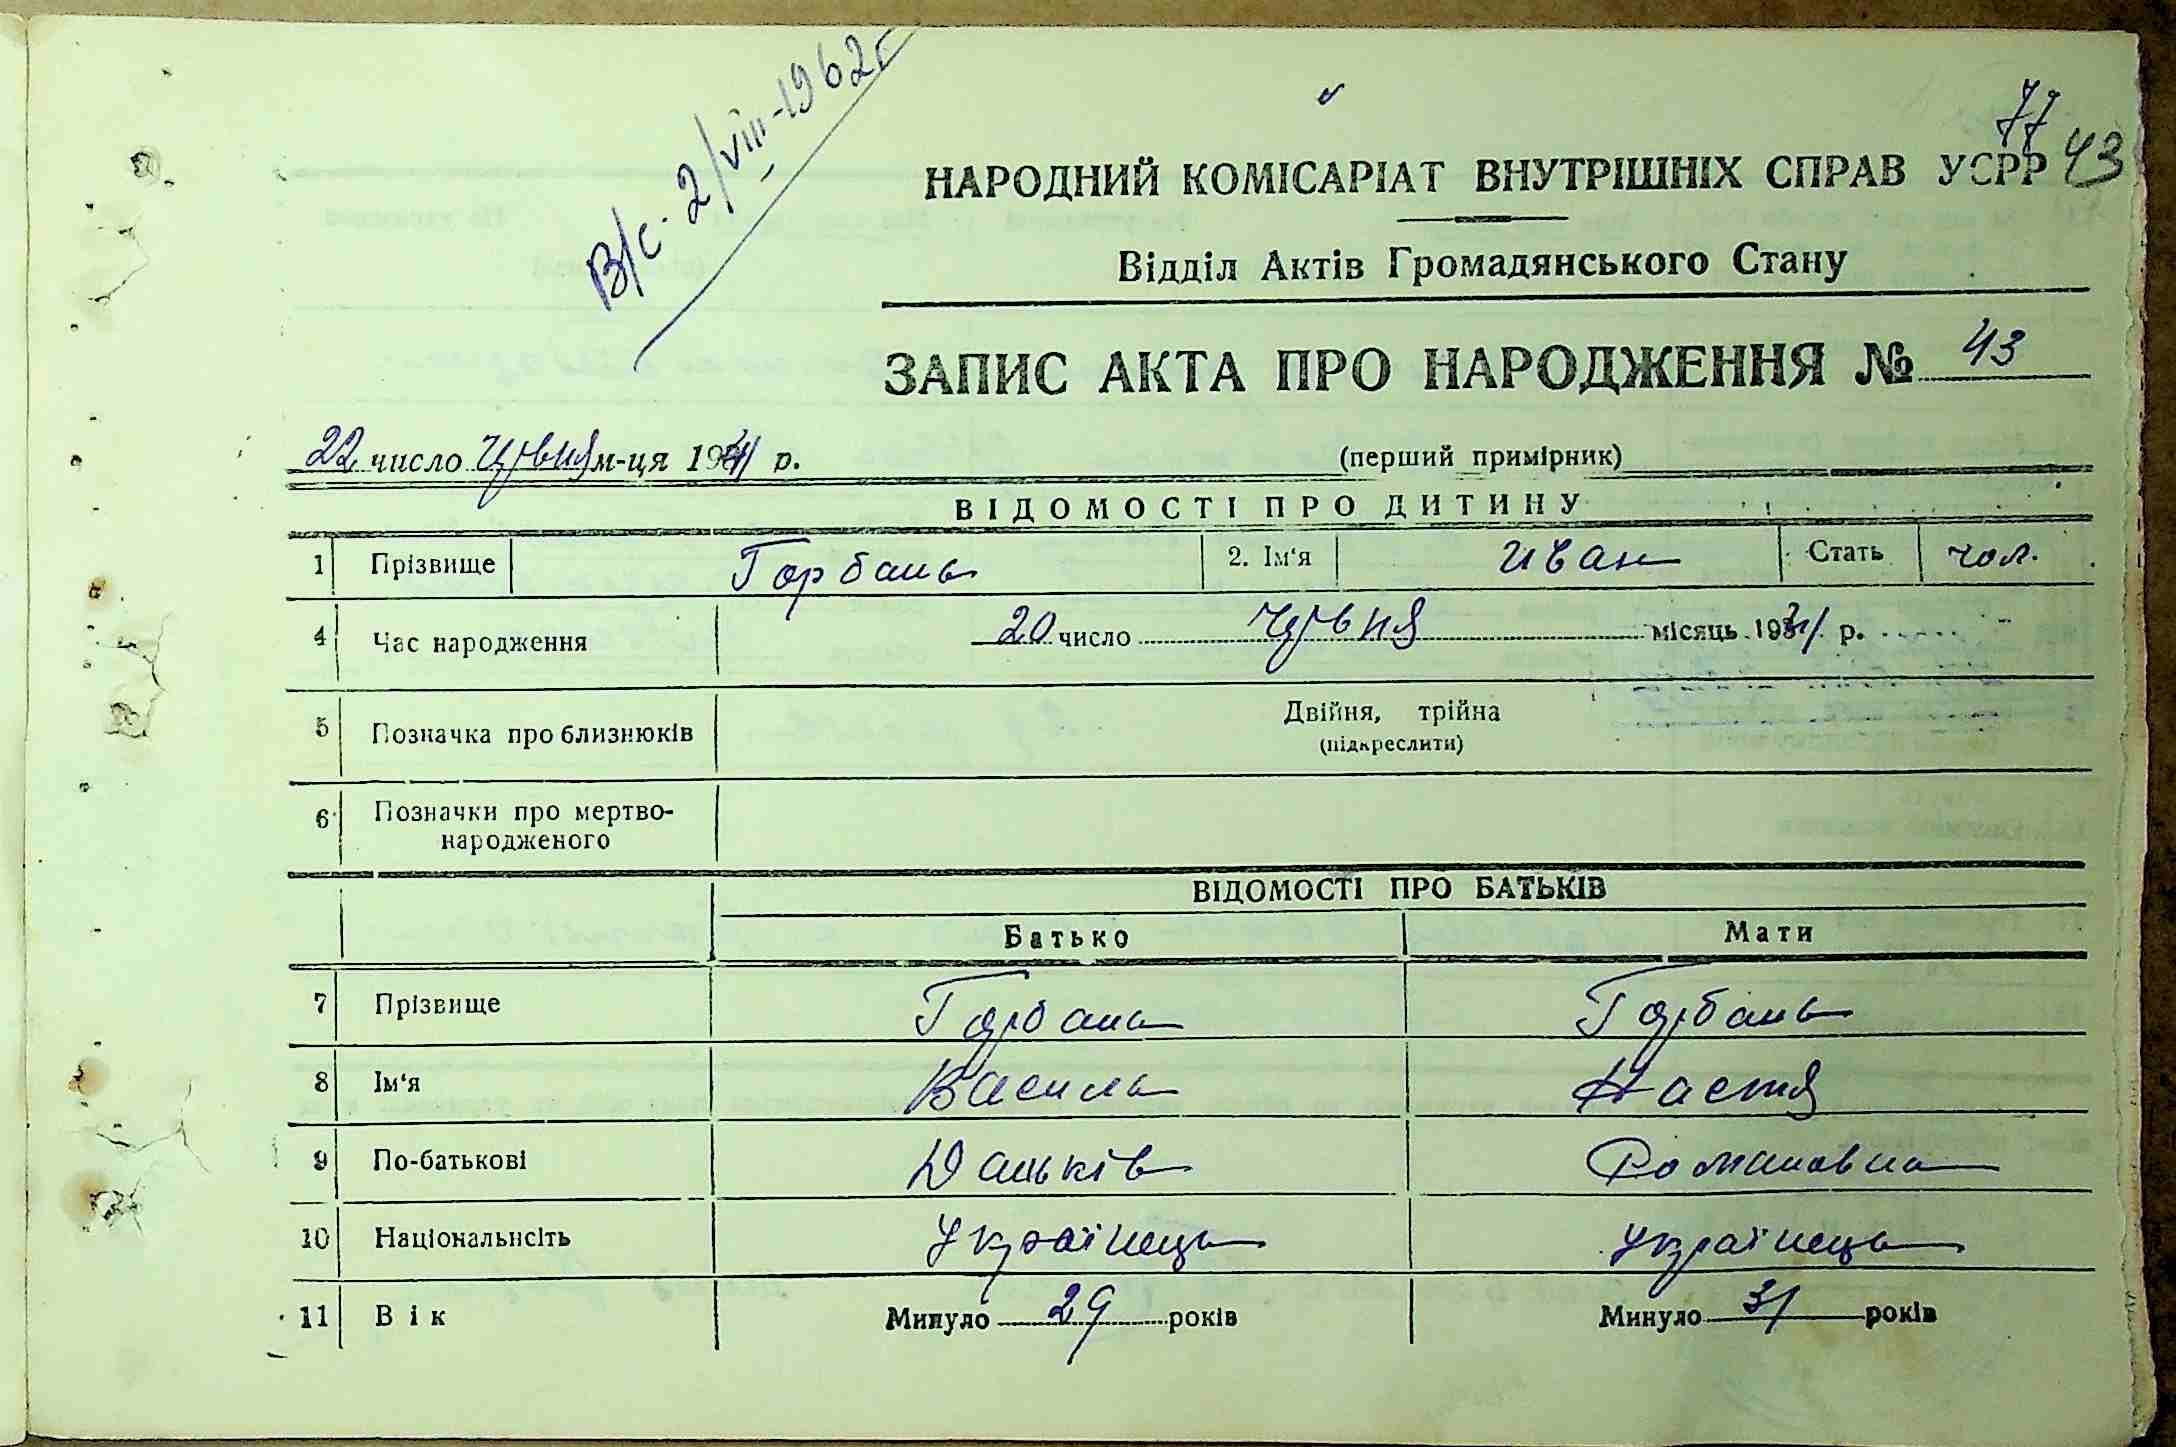 В/с. 2/VIII-1962г
77
НАРОДНИЙ КОМІСАРІАТ ВНУТРІШНІХ СПРАВ УСРР 43
Відділ Актів Громадянського Стану
ЗАПИС АКТА ПРО НАРОДЖЕННЯ № 43
22 число червня м-ця 1941 р. (перший примірник)
ВІДОМОСТІ ПРО ДИТИНУ
1 Прізвище Горбань 2. Ім'я Иван Стать чол.
4 Час народження 20 число червня місяць 1941 р.
5 Позначка про близнюків Двійня, трійна
(підкреслити)
6 Позначки про мертво-
народженого
ВІДОМОСТІ ПРО БАТЬКІВ
Батько Мати
7 Прізвище Горбань Горбань
8 Ім'я Василь Настя
9 По-батькові Даньків Романовна
10 Національність Українець Українець
11 Вік Минуло 29 років Минуло 31 років